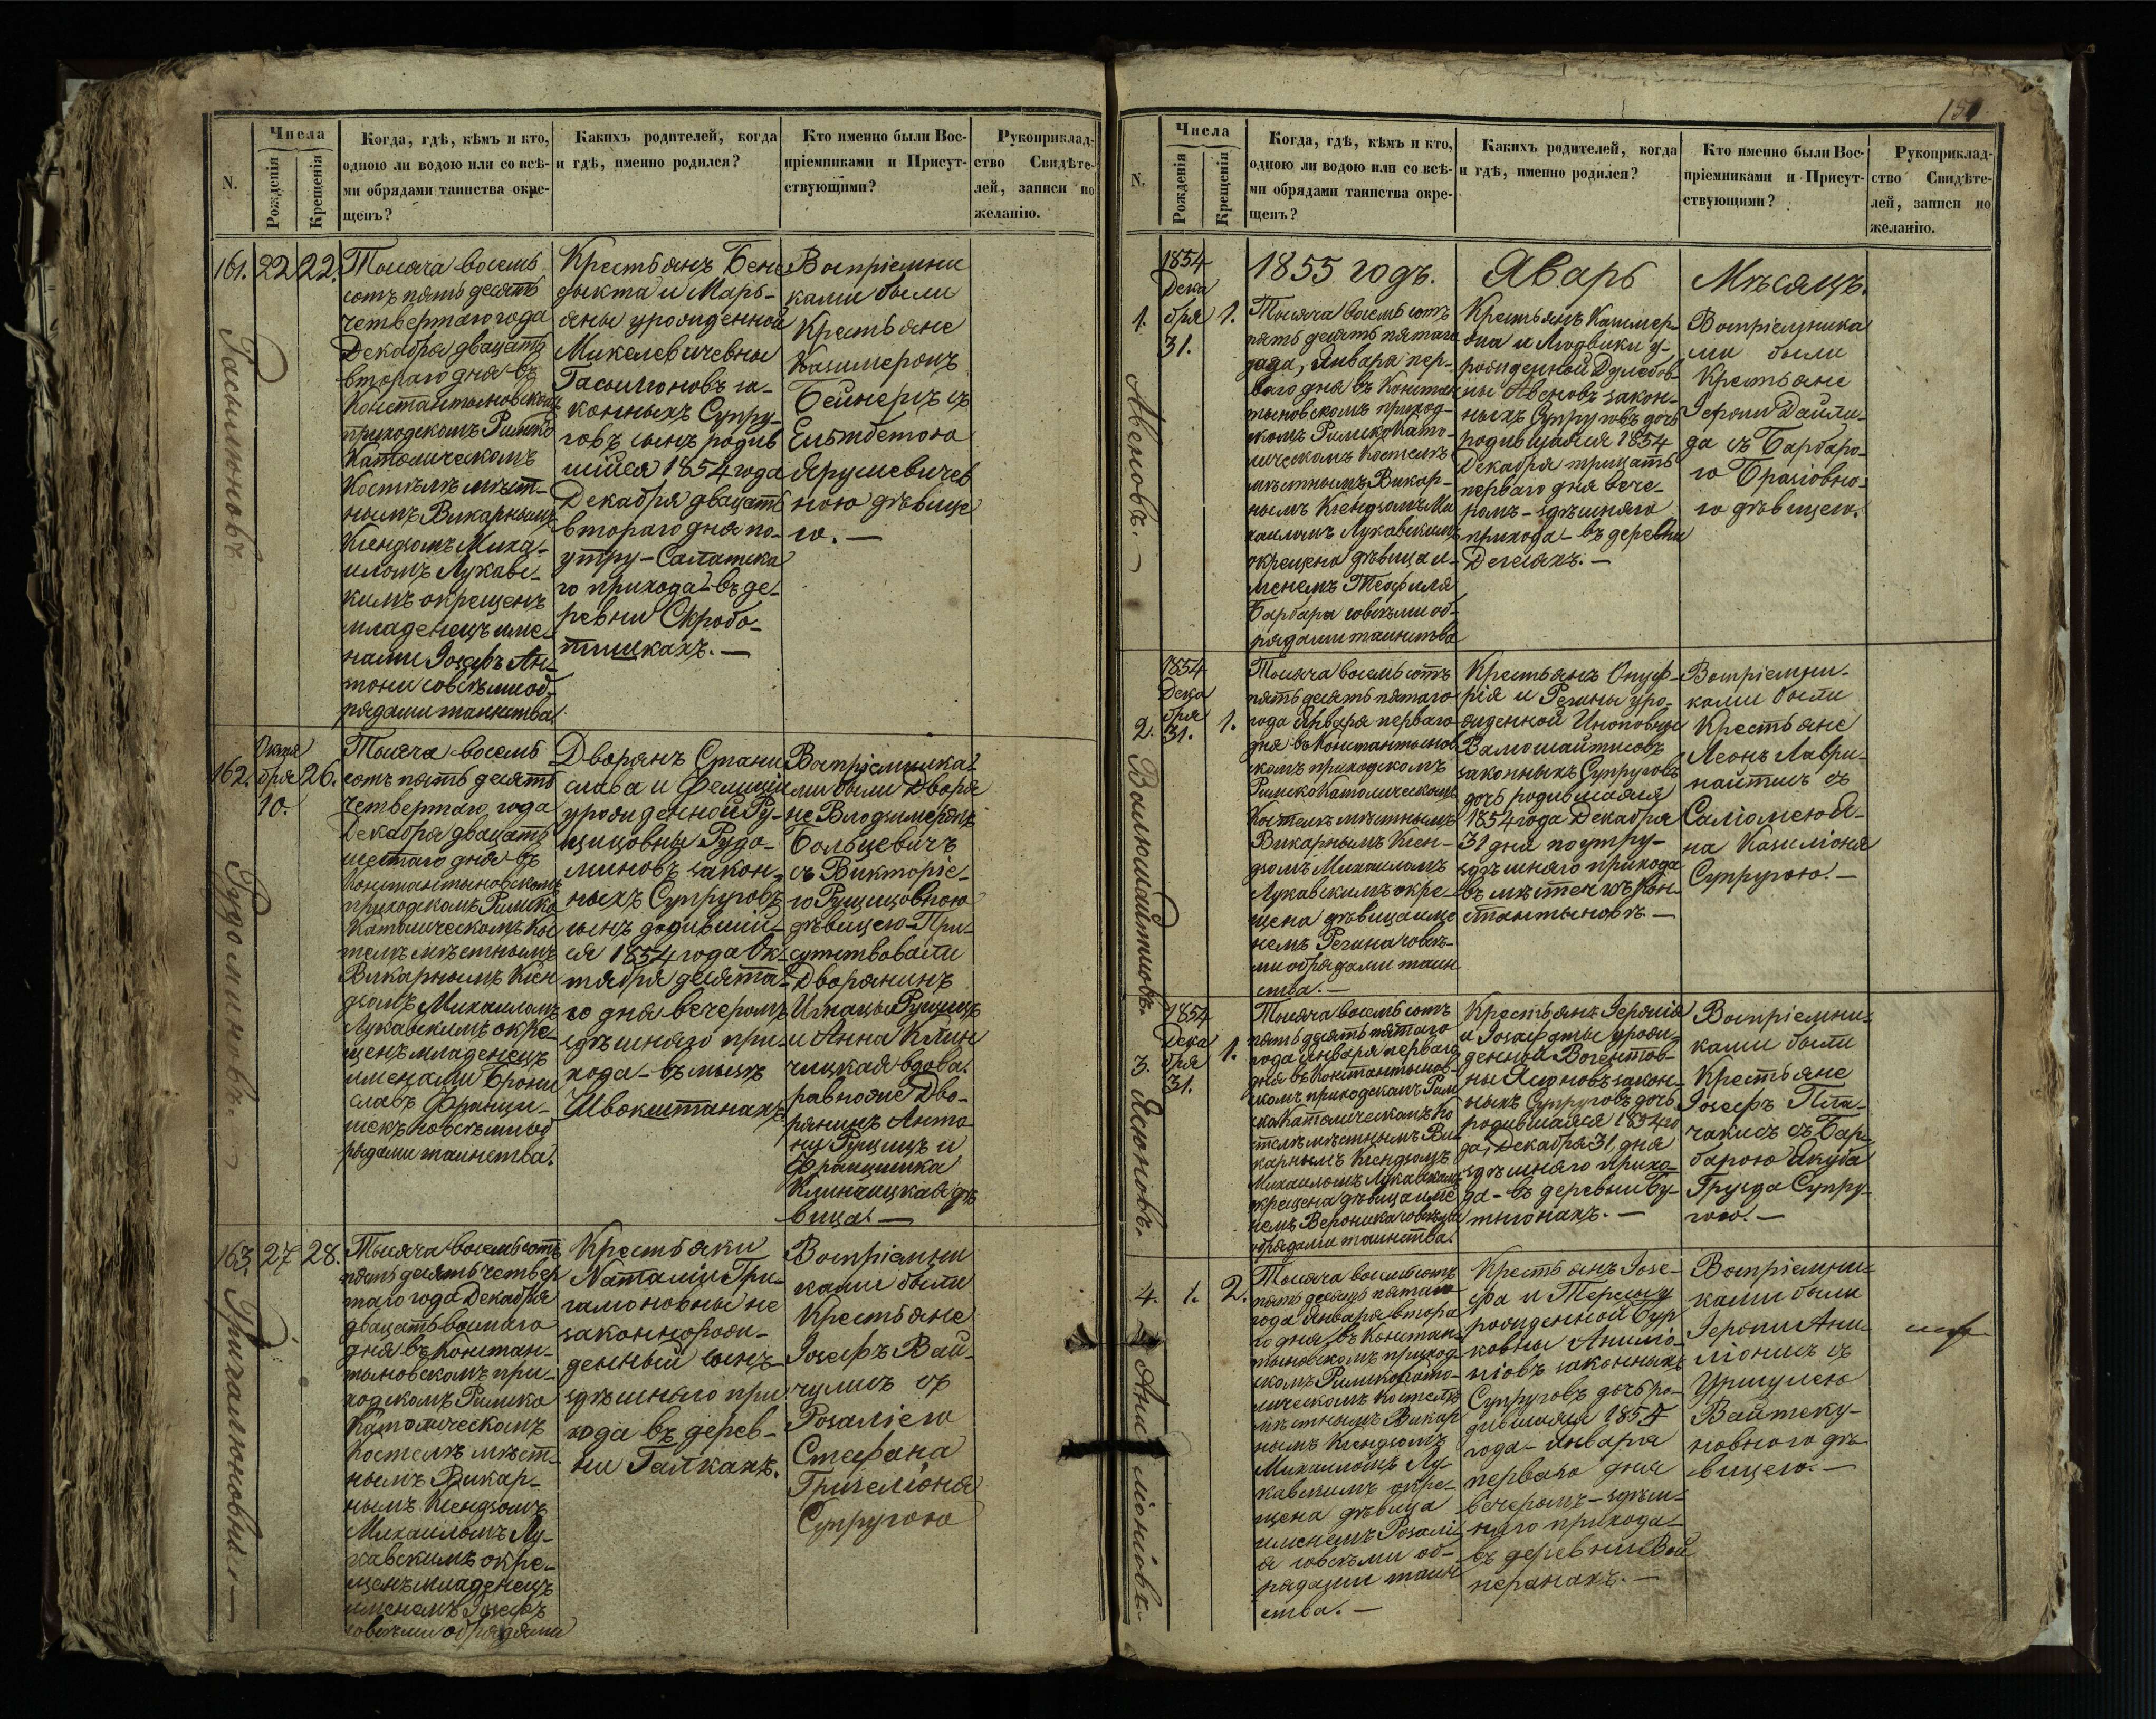 N.
Числа
Рожденія
Крещенія
Когда, гдѣ, кѣмъ и кто,
одною ли водою или со всѣ-
ми обрядами таинства окре-
щенъ?
Какихъ родителей, когда
и гдѣ, именно родился?
Кто именно были Вос-
пріемниками и Присут-
ствующими?
Рукоприклад-
ство Свидѣте-
лей, записи по
желанію.
161. 22 22.
Тысяча восемь
сотъ пять десятъ
четвертаго года
Декабря двацать
втораго дня въ
Константыновскомъ
приходскомъ Римско
Католическомъ
Костелѣ мѣст-
нымъ Викарнымъ
Ксендзомъ Миха-
иломъ Лукавс-
кимъ окрещенъ
младенецъ име-
нами Іозефъ Ан-
тони совсѣми об-
рядами таинства
Крестьянъ Бене
дыкта и Марь-
яны урожденной
Микелевичевны
законныхъ Супру-
говъ сынъ родив
шійся 1854 года
Декабря двацать
втораго дня по-
утру - Салатска
го прихода - въ де-
ревни Скробо-
тишкахъ. —
Воспріемни
ками были
Крестьяне
Казимеромъ
Бейнеръ съ
Ельжбетою
Ярушевичев
ною дѣвице
ю. —
162.
Октя
бря
10.
26.
Рудоминовъ. —
Тысяча восемь
сотъ пять десятъ
четвертаго года
Декабря двацать
шестаго дня въ
Константыновскомъ
приходскомъ Римско
Католическомъ Кос
телѣ мѣстнымъ
Викарнымъ Ксен
дзомъ Михаиломъ
Лукавскимъ окре-
щенъ младенецъ
именами Брони
славъ Францы-
шекъ совсѣми об
рядами таинства.
Дворянъ Стани
слава и Фелиціи
урожденной Ру-
щицовны Рудо-
миновъ закон-
ныхъ Супруговъ
сынъ родившій-
ся 1854 года Ок-
тября десята-
го дня вечеромъ
здѣшняго при-
хода - въ мызѣ
Швокштанахъ
Воспріемника-
ми были Дворя
не Влодзимеромъ
Больцевичъ
съ Викторіе-
ю Рущицовною
дѣвицею - При-
сутствовали
Дворянинъ
Игнацы Рущицъ
и Анна Клин
чицкая вдова.
равноже Дво-
рянинъ Анто
ни Рущицъ и
Францишка
Клинчицкая дѣ
вица. —
163. 27 28.
Тысяча восемь сотъ
пять десятъ четвер
таго года Декабря
двацать восмаго
дня въ Констан-
тыновскомъ при-
ходскомъ Римско
Католическомъ
Костелѣ мѣст-
нымъ Викар-
нымъ Ксендзомъ
Михаиломъ Лу-
кавскимъ окре-
щенъ младенецъ
именемъ Іозефъ
совсѣми обрядами
Крестьянки
Наталіи Гри-
галюновны не
законнорож-
денный сынъ
здѣшняго при
хода въ дерев-
ни Галкахъ.
Воспріемни
ками были
Крестьяне
Іозефъ Вай-
чулисъ съ
Розаліею
Стефана
Супругою
N.
Числа
Рожденія
Крещенія
Когда, гдѣ, кѣмъ и кто,
одною ли водою или со всѣ-
ми обрядами таинства окре-
щенъ?
Какихъ родителей, когда
и гдѣ, именно родился?
Кто именно были Вос-
пріемниками и Присут-
ствующими?
Рукоприклад-
ство Свидѣте-
лей, записи по
желанію.
1855 годъ. Яварь Мѣсяцъ.
1.
1854
Дека
бря
31.
1.
Авеновъ. —
Тысяча восемь сотъ
пять десятъ пятаго
года, Января пер-
ваго дня въ Констан
тыновскомъ приход-
скомъ Римско Като-
лическомъ Костелѣ
мѣстнымъ Викар-
нымъ Ксендзомъ Ми
хаиломъ Лукавскимъ
окрещена дѣвица и-
менемъ Теофиля
Барбара совсѣми об-
рядами таинства
Крестьянъ Казимер-
жа и Людвики у-
рожденной Дулебов-
ны Авеновъ закон-
ныхъ Супруговъ дочь
родившаяся 1854
Декабря трицать
перваго дня вече-
ромъ - здѣшняго
прихода - въ деревни
Воспріемника
ми были
Крестьяне
Іерони Дайли-
да съ Барбаро-
ю дѣвицею.
2.
1854
Дека
бря
31.
1.
Тысяча восемь сотъ
пять десятъ пятаго
года Января перваго
дня въ Константынов
скомъ приходскомъ
Римско Католическомъ
Костелѣ мѣстнымъ
Викарнымъ Ксен-
дзомъ Михаиломъ
Лукавскимъ окре-
щена дѣвица име
немъ Регина совсѣ-
ми обрядами таин
ства. —
Крестьянъ Онуф-
рія и Регины уро-
жденной
законныхъ Супруговъ
дочь родившаяся
1854 года Декабря
31 дня поутру -
здѣшняго прихода
въ мѣстечкѣ Кон-
стантыновѣ —
Воспріемни-
ками были
Крестьяне
Леонъ Лаври-
найтисъ съ
Саломею Я-
на
Супругою. —
3.
1854
Дека
бря
31.
1.
Ясюновъ.
Тысяча восемь сотъ
пять десятъ пятаго
года Января перваго
дня въ Константынов-
скомъ приходскомъ Рим
ско Католическомъ Ко
стелѣ мѣстнымъ Ви
карнымъ Ксендзомъ
Михаиломъ Лукавскимъ
окрещена дѣвица име
немъ Вероника совсѣми
обрядами таинства.
и Іозафаты урож-
денной
ны Ясюновъ закон-
ныхъ Супруговъ дочь
родившаяся 1854 го
да, Декабря 31, дня
здѣшняго прихо-
да - въ деревни Бу-
Воспріемни-
ками были
Крестьяне
Іозефъ Пла-
чакисъ съ Бар-
барою Якуба
Супру-
гою. —
4. 1. 2.
Тысяча восемь сотъ
пять десятъ пятаго
года Января втора
го дня въ Констан-
тыновскомъ приход-
скомъ Римско Като-
лическомъ Костелѣ
мѣстнымъ Викар
нымъ Ксендзомъ
Михаиломъ Лу-
кавскимъ окре-
щена дѣвица
именемъ Розалі-
я совсѣми об-
рядами таин
ства. —
Крестьянъ Іозе-
фа и Терезы
рожденной Бур
ковны
законныхъ
Супруговъ дочь ро-
дившаяся 1854
года - Января
перваго дня
вечеромъ - здѣш-
няго прихода -
въ деревни Вой
перанахъ. —
Воспріемни-
ками были
Іерони
съ
Уршулею
Войтеку-
новною дѣ-
вицею. —